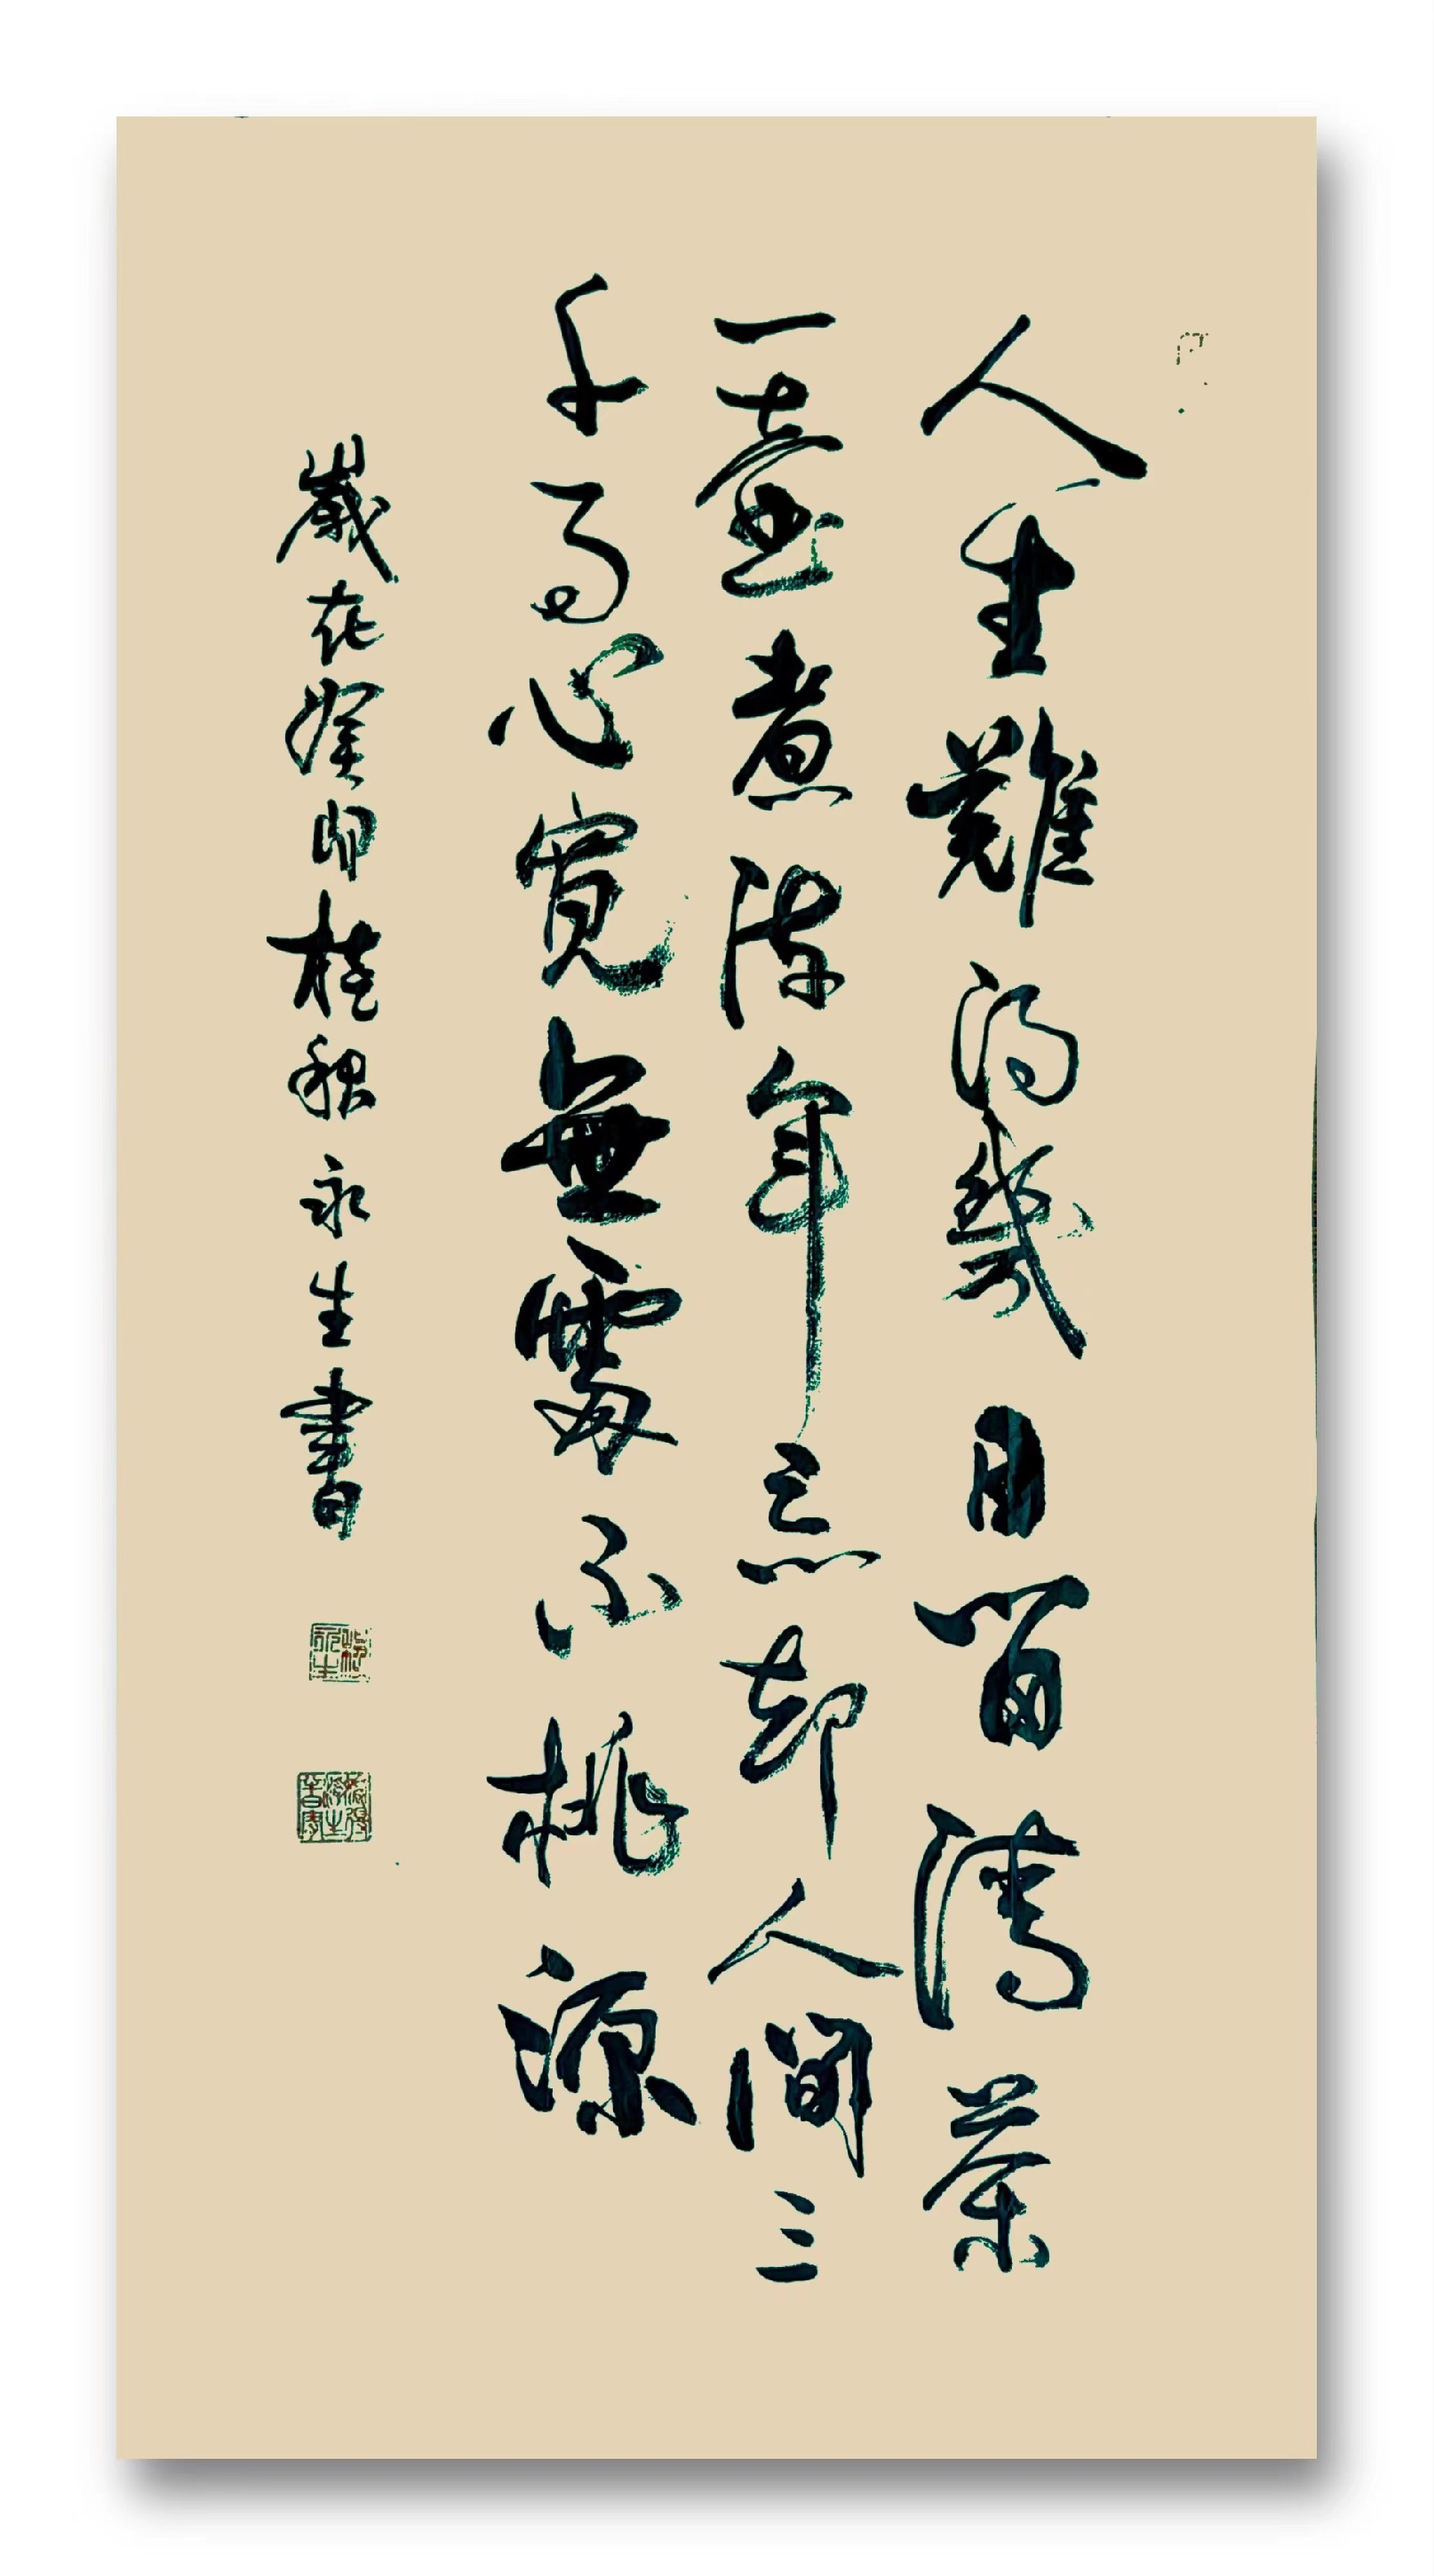 人生難得幾日閒清茶
一壺煮陳年忘却人間三
千事心寬無處不桃源
歲在癸卯桂秋永生書